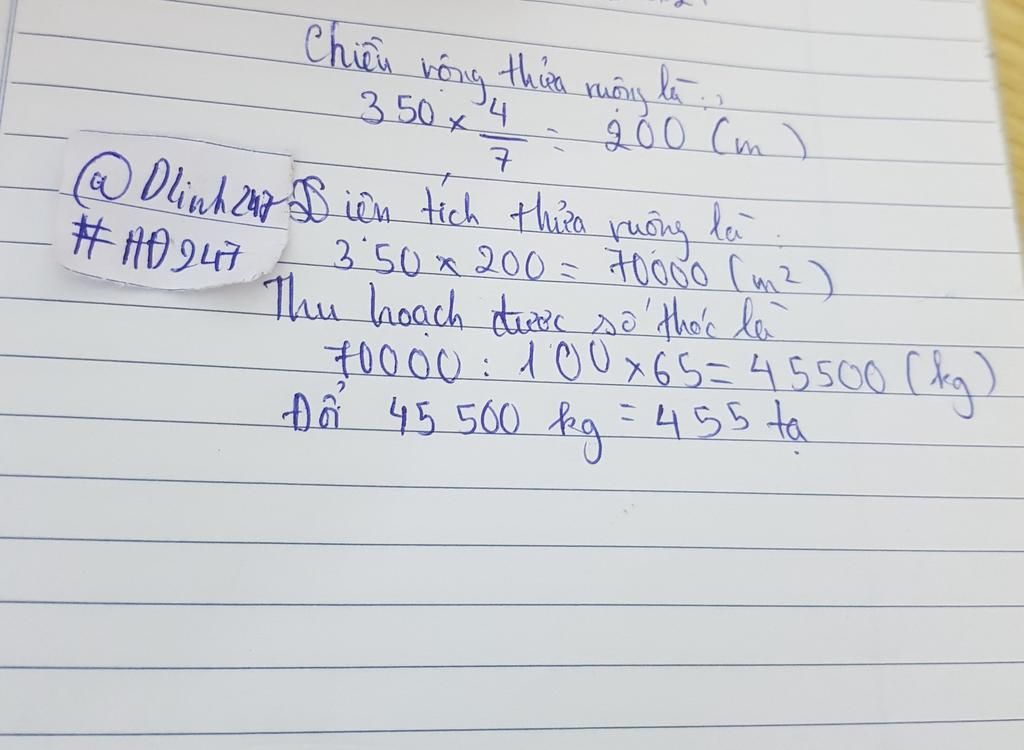 Chiều rộng thửa ruộng là:
350 × 4/7 = 200 (m)
@Dlinh247
#AĐ247
Diện tích thửa ruộng là
350 × 200 = 70000 (m²)
Thu hoạch được số thóc là
70000 : 100 × 65 = 45500 (kg)
Đổi 45 500 kg = 455 tạ